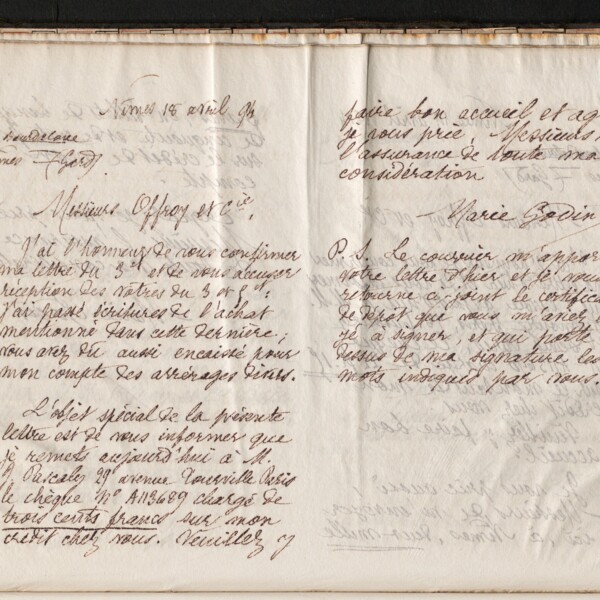 Nîmes 18 avril 94
Bourdaloue
Nîmes 7 Gard
Messieurs Offroy et Cie,
J'ai l'honneur de vous confirmer
ma lettre du 3 ct et de vous accuser
réception des vôtres du 3 et 5 ct:
j'ai passé écritures de l'achat
mentionné dans cette dernière;
vous avez dû aussi encaissé pour
mon compte des arrérages divers.
L'objet spécial de la présente
lettre est de vous informer que
je remets aujourd'hui à M.
P. Pascaley 29 avenue Tourville Paris
le chèque N° A113689 chargé de
trois cents francs sur mon
crédit chez vous. Veuillez y
faire bon accueil et ag
je vous prie, Messieurs,
l'assurance de toute ma
considération
Marie Godin
P. S. Le courrier m'appor
votre lettre d'hier et je vous
retourne ci joint le certific
de dépôt que vous m'avez
à signer, et qui porte
dessus de ma signature les
mots indiqués par vous.